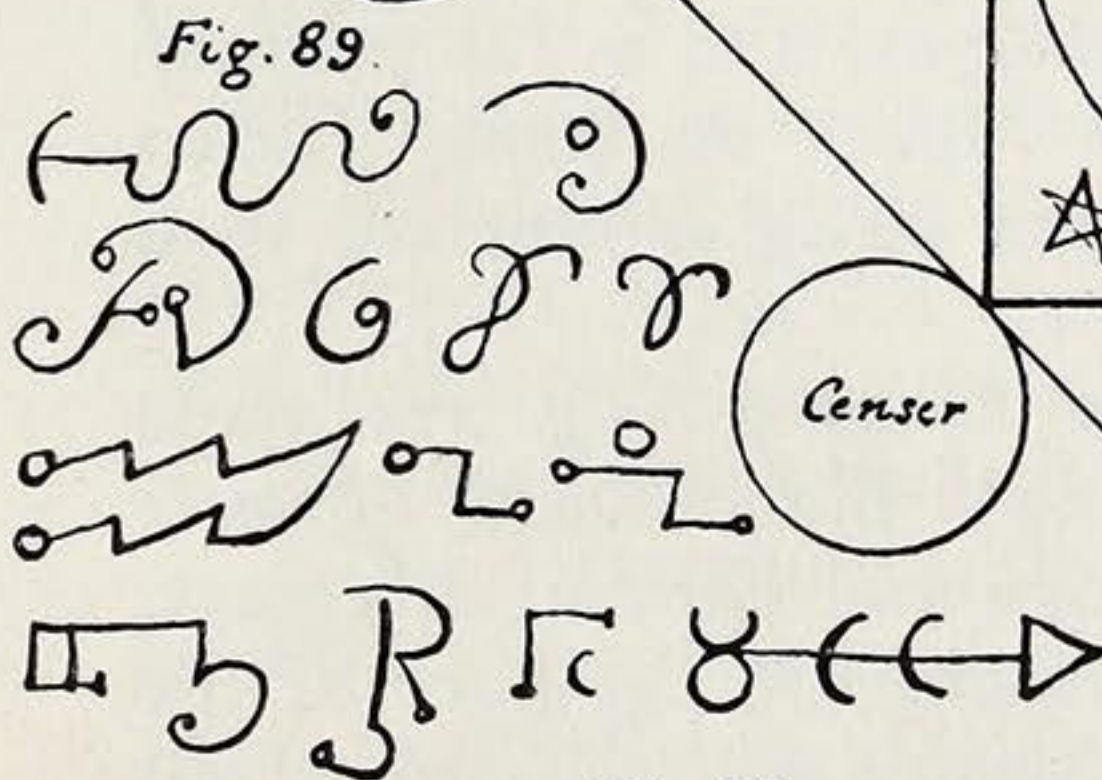 Fig. 89.
Censer